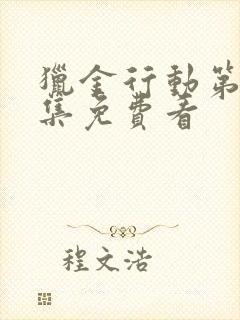 獵金行動第
集免費看
程文浩